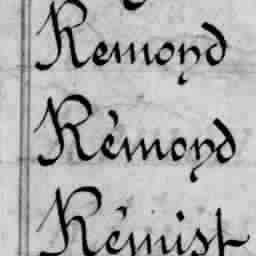 Remond
Rémond
Rémist